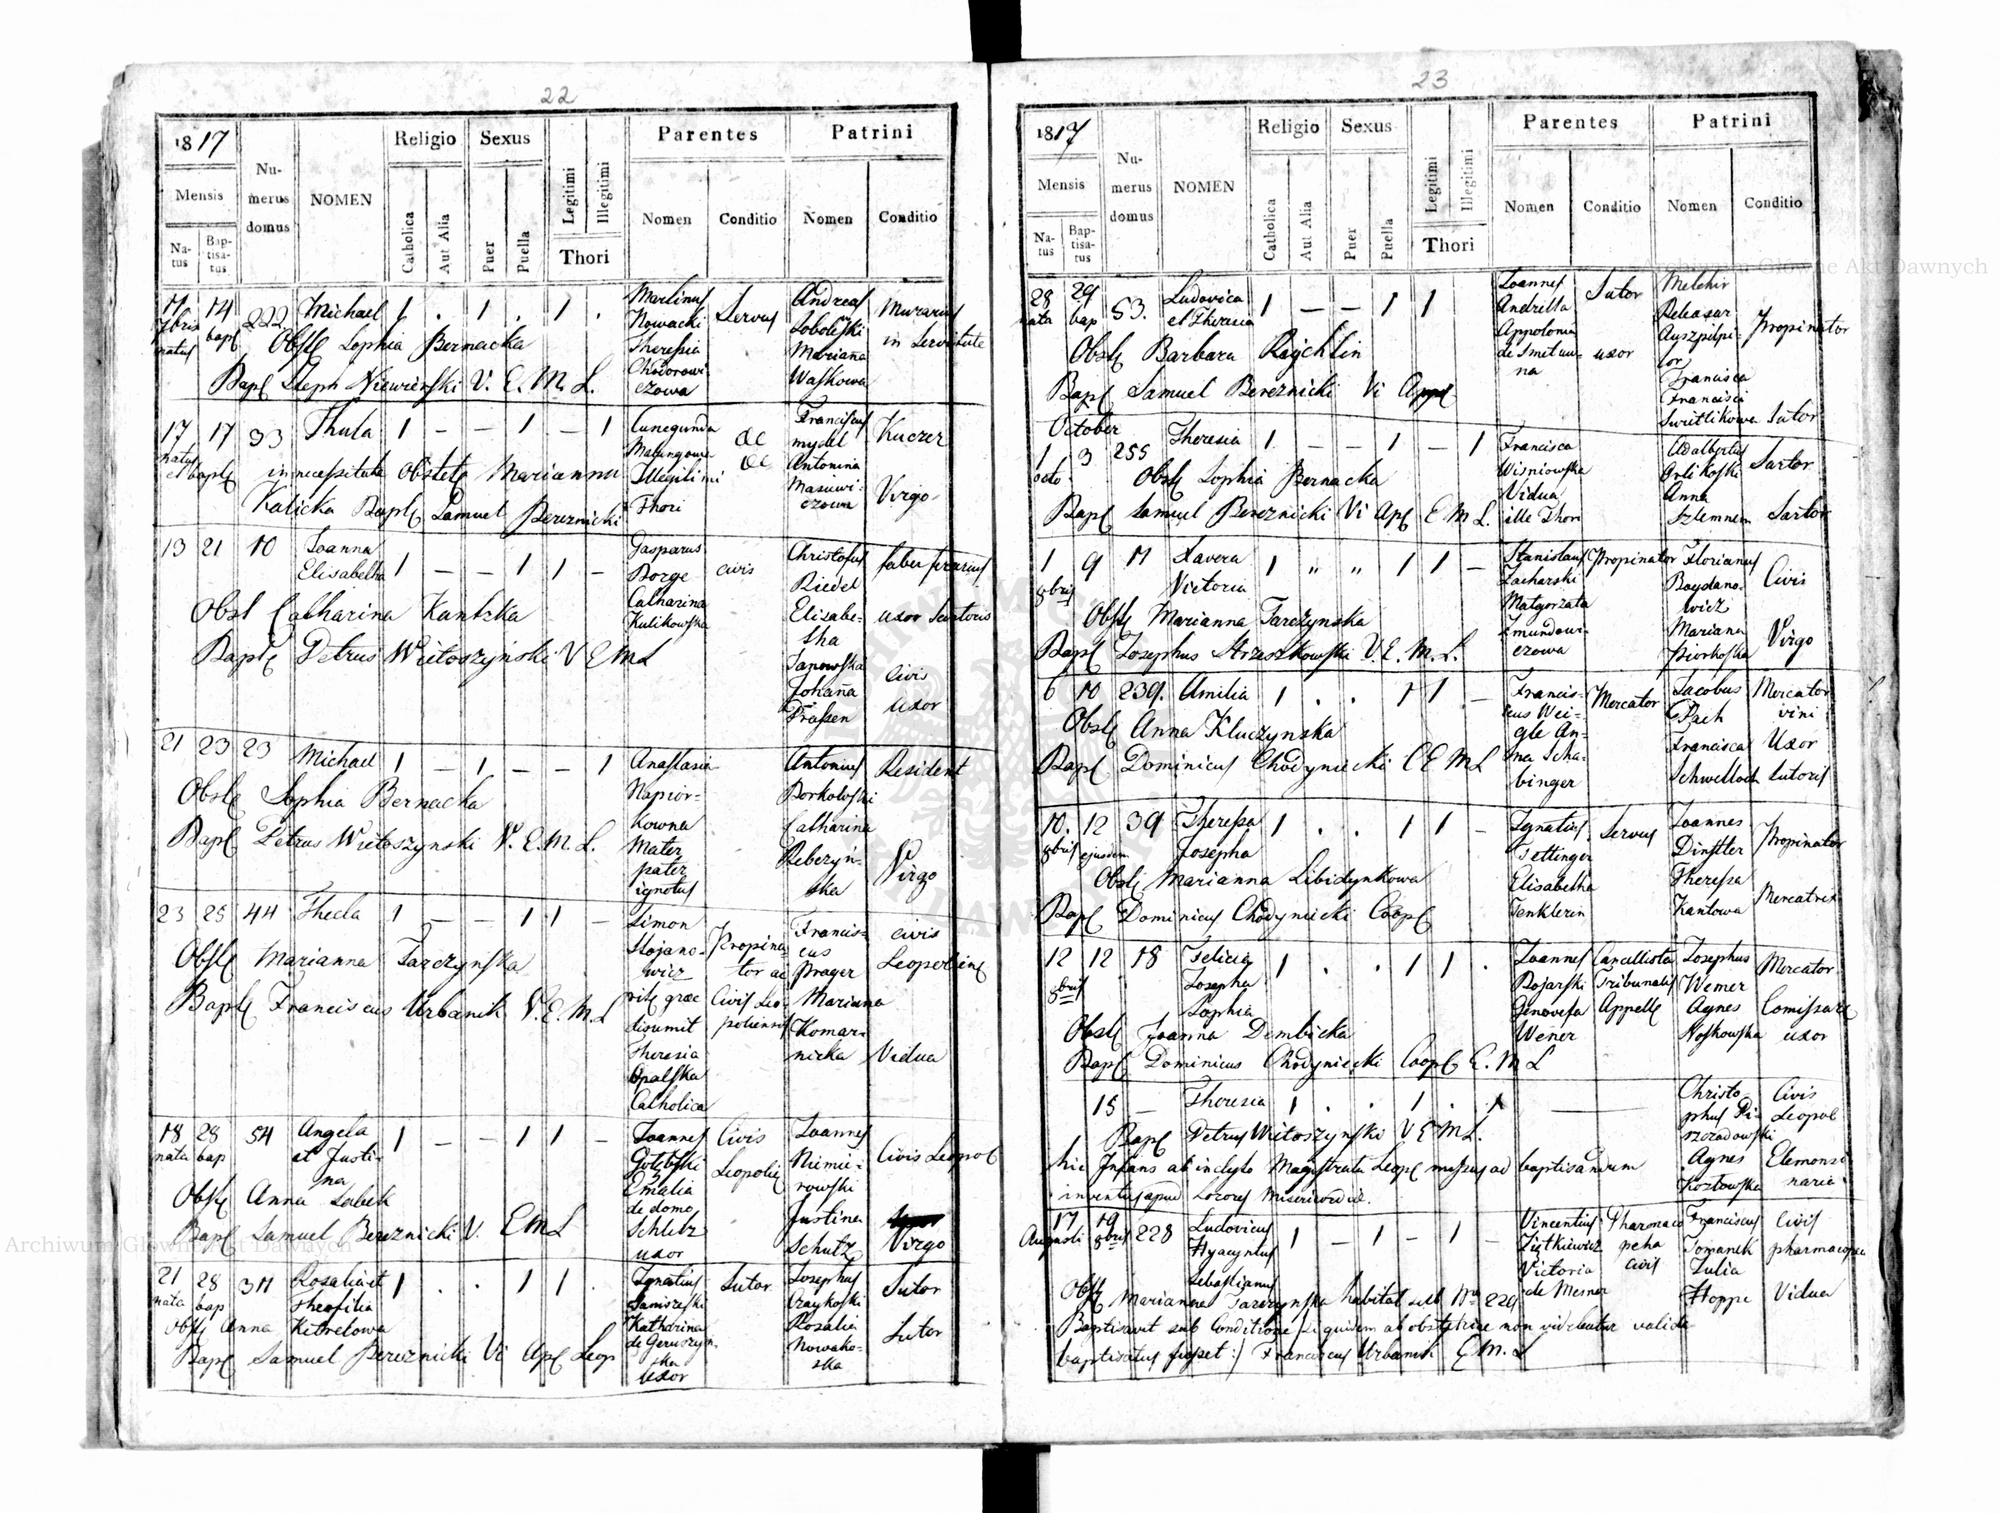 22
1817
Mensis
Natus
Baptisatus
Numerus domus
NOMEN
Religio
Catholica
Aut Alia
Sexus
Puer
Puella
Legitimi
Illegitimi
Thori
Parentes
Nomen
Conditio
Patrini
Nomen
Conditio
11 14 222 Michael 1 . 1 . 1 .
7bris
natus
bapt
Martinus
Nowacki
Theresia
Chodorowi
czowa
Servus
Andreas
Soboleski
Mariana
Waskowa
Murarius
in Servitute
Obste Sophia Bernacka
Bapt Steph V. E. M. L.
17 17 33 Thecla 1 – – 1 – 1
natus
et bapte
Cunegunda
Illegitimi
Thori
Franciscus
mydel
Antonina
Masiewi-
czowa
Kuczer
Virgo
in necessitate Obstete Marianna
Kalicka Bapte Samuel Bereznicki
13 21 10 Joanna
Elisabetha 1 – – 1 1 –
Gasparus
Borge
Catharina
Kulikowska
civis
Christofus
Riedel
Elisabe-
tha
Janowska
Johana
Prassen
faber ferarius
uxor Sartoris
Civis
uxor
Obst Catharina Kantzka
Bapte Petrus Wietoszyński V E M L
21 23 23 Michael 1 – 1 – – 1
Anastasia
Napior-
kowna
Mater
pater
ignotus
Antonius
Borkowski
Catharina
Rebezyń-
ska
Resident
Virgo
Obste Sophia Bernacka
Bapt Petrus Wietoszynski V. E. M. L.
23 25 44 Thecla 1 – – 1 1 –
Simon
Stojano-
wicz
rit graec
disumit
Theresia
Opalska
Catholica
Propina
tor ac
Civis Leo-
poliensis
Francis-
cus
Prager
Mariana
Komar-
nicka
civis
Leopoliens
Vidua
Obste Marianna Tarczynska
Bapte Franciscus Urbanik V. E. M. L
18 28 54 Angela
et Justi-
na 1 – – 1 1 –
nata
bap
Joannes
Gołębski
Emalia
de domo
Schletz
uxor
Civis
Leopolis
Joannes
Niemie-
rowski
Justina
Schutz
Civis Leopol
Virgo
Obste Anna Sabek
Bapt Samuel Bereznicki V. E M L
21 28 311 Rosalia et
Theofilia 1 . . 1 1 .
nata
bap
Ignatius
Katharina
ska
uxor
Sutor
Josephus
Rosalia
Nowako-
ska
Sutor
Sutor
obste Anna Kitrelowa
Bapt Samuel Bereznicki Vi Apt Leop
23
1817
Mensis
Natus
Baptisatus
Numerus domus
NOMEN
Religio
Catholica
Aut Alia
Sexus
Puer
Puella
Legitimi
Illegitimi
Thori
Parentes
Nomen
Conditio
Patrini
Nomen
Conditio
28 29 53. Ludovica
et Theresia 1 – – 1 1
nata
bap
Joannes
Andrella
Appolonia
de Smetan-
na
Sutor
uxor
Melchir
Auszpilpi-
lor
Francisca
Francisci
Swietlikowa
Propinator
Sutor
Obste Barbara Raychlin
Bapt Samuel Bereznicki Vi Appl
October
1 3 255 Theresia 1 – – 1 – 1
octo.
Francisca
Wisniowska
Vidua
ille Thori
Adalbertus
Orlikoski
Anna
Szlemnem
Sartor
Sartor
Obste Sophia Bernacka
Bapt Samuel Bereznicki Vi Apt E M L.
1 9 11 Xavera
Victoria 1 " " 1 1 –
8bris
Stanislaus
Zacharski
Małgorzata
Zmundowi-
czowa
Propinator
Florianus
Bogdano-
wicz
Mariana
Piorkoska
Civis
Virgo
Obste Marianna Tarczynska
Bapt Josephus Strzeszkowski V. E. M. L.
6 10 239. Amilia 1 . . 1 1 –
Francis-
cus Wei-
gle An-
na Scha-
binger
Mercator
Jacobus
Pach
Francisca
Schwelloch
Mercator
vini
Uxor
Sutoris
Obste Anna Kluczynska
Bapt Dominicus Chodyniecki C E M L
10. 12 39 Theressa
Josepha 1 . . 1 1 –
8bris
ejusdem
Ignatius
Tettinger
Elisabetha
Tenklerin
Servus
Joannes
Dinstler
Theressa
Kantowa
Propinator
Mercatrix
Obste Marianna Libidynkowa
Bapt Dominicus Chodyniecki Coopt
12 12 18 Felicia
Josepha
Sophia 1 . . 1 1 .
8bris
Joannes
Bojarski
Genovefa
Wener
Cancellista
Tribunalis
Appelle
Josephus
Wemer
Agnes
Noskowska
Mercator
Comissare
uxor
Obste Joanna Dembicka
Bapt Dominicus Chodyniecki Coopt E. M L
15 – Theresia 1 . . 1 . 1
Christo
phus Pi-
szczadowski
Agnes
Kozłowska
Civis
Leopol
Elemonsi
naria
Bapt Petrus Wietoszyński V E M L.
hic Infans ab inclyto Magistratu Leopt missus ad baptisandum
inventus apud Sorores Misericordiæ.
17 19 228 Ludovicus
Hyacyntus
Sebastianus 1 – 1 – 1 –
Augusti
8bris
Vincentius
Ziętkiewicz
Victoria
de Mesner
Pharmaco
peha
civis
Franciscus
Tomanek
Julia
Hoppe
Civis
pharmacopea
Vidua
Obste Marianna Tarczynska habitat sub Nro 229
Baptisavit sub Conditione si quidem ab obstetrice non videbatur valide
baptisatus fuisset :/ Franciscus Urbanik E M. L
Archiwum Główne Akt Dawnych
Archiwum Główne Akt Dawnych